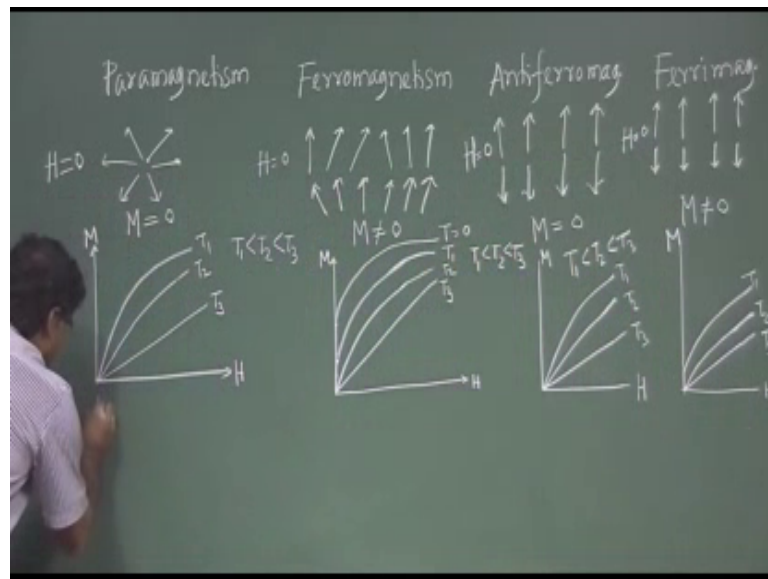 Paramagnetism
H=0
M=0
M
T₁
T₂
T₃
T₁<T₂<T₃
H
Ferromagnetism
H=0
M≠0
M
T=0
T₁
T₂
T₃
T₁<T₂<T₃
H
Antiferromag
H=0
M=0
M
T₁<T₂<T₃
T₁
T₂
T₃
H
Ferrimag
H=0
M≠0
M
T₁